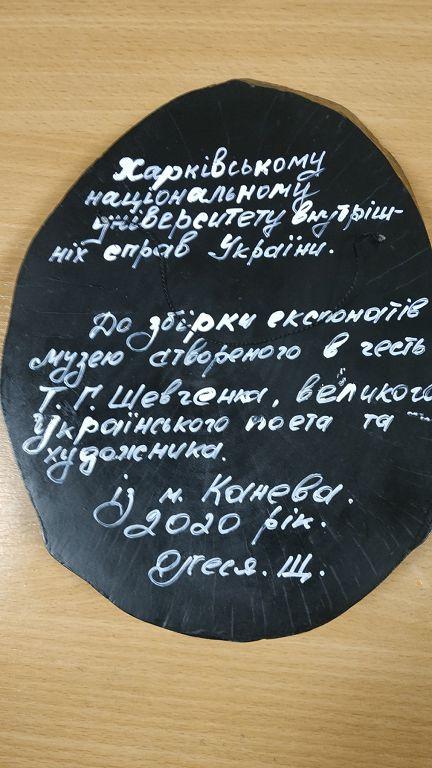 Харківському
національному
університету внутріш-
ніх справ України.
До збірки експонатів
музею створеного в честь
Т. Г. Шевченка, великого
українського поета та
художника.
із м. Канева.
2020 рік.
Олеся. Щ.